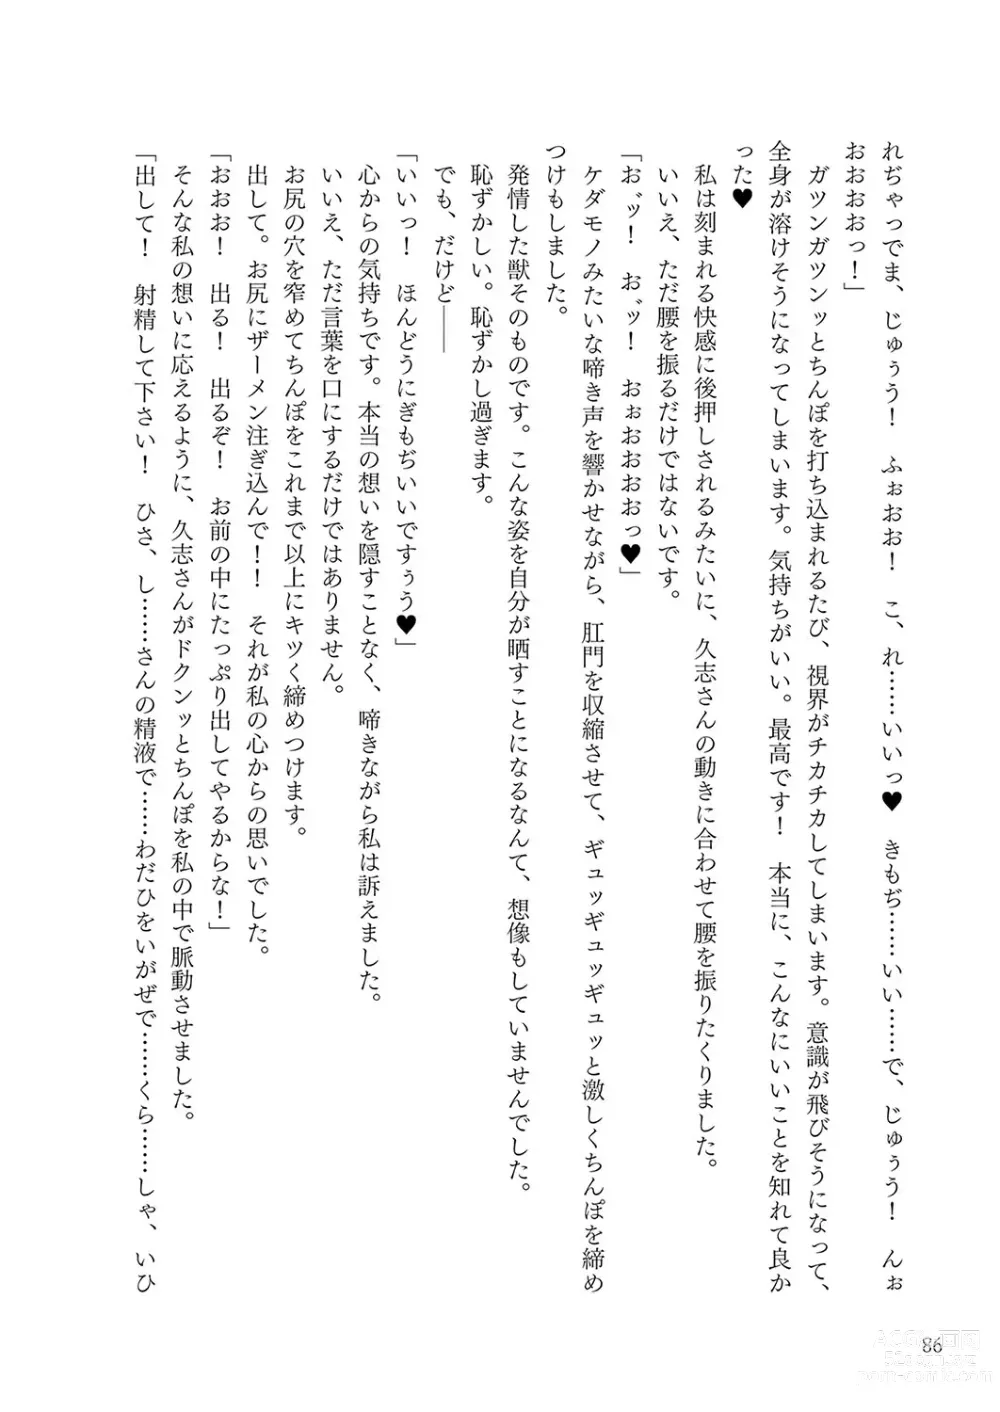 れぢゃっでま、じゅぅう！　ふぉおお！　こ、れ……いいっ♥　きもぢ……いい……で、じゅぅう！　んぉ
おおおおっ！」
　ガツンガツンッとちんぽを打ち込まれるたび、視界がチカチカしてしまいます。意識が飛びそうになって、
全身が溶けそうになってしまいます。気持ちがいい。最高です！　本当に、こんなにいいことを知れて良か
った♥
　私は刻まれる快感に後押しされるみたいに、久志さんの動きに合わせて腰を振りたくりました。
　いいえ、ただ腰を振るだけではないです。
「お゛ッ！　お゛ッ！　おぉおおおおっ♥」
　ケダモノみたいな啼き声を響かせながら、肛門を収縮させて、ギュッギュッギュッと激しくちんぽを締め
つけもしました。
　発情した獣そのものです。こんな姿を自分が晒すことになるなんて、想像もしていませんでした。
　恥ずかしい。恥ずかし過ぎます。
　でも、だけど――
「いいっ！　ほんどうにぎもぢいいですぅう♥」
　心からの気持ちです。本当の想いを隠すことなく、啼きながら私は訴えました。
　いいえ、ただ言葉を口にするだけではありません。
　お尻の穴を窄めてちんぽをこれまで以上にキツく締めつけます。
　出して。お尻にザーメン注ぎ込んで！！　それが私の心からの思いでした。
「おおお！　出る！　出るぞ！　お前の中にたっぷり出してやるからな！」
　そんな私の想いに応えるように、久志さんがドクンッとちんぽを私の中で脈動させました。
「出して！　射精して下さい！　ひさ、し……さんの精液で……わだひをいがぜで……くら……しゃ、いひ
86